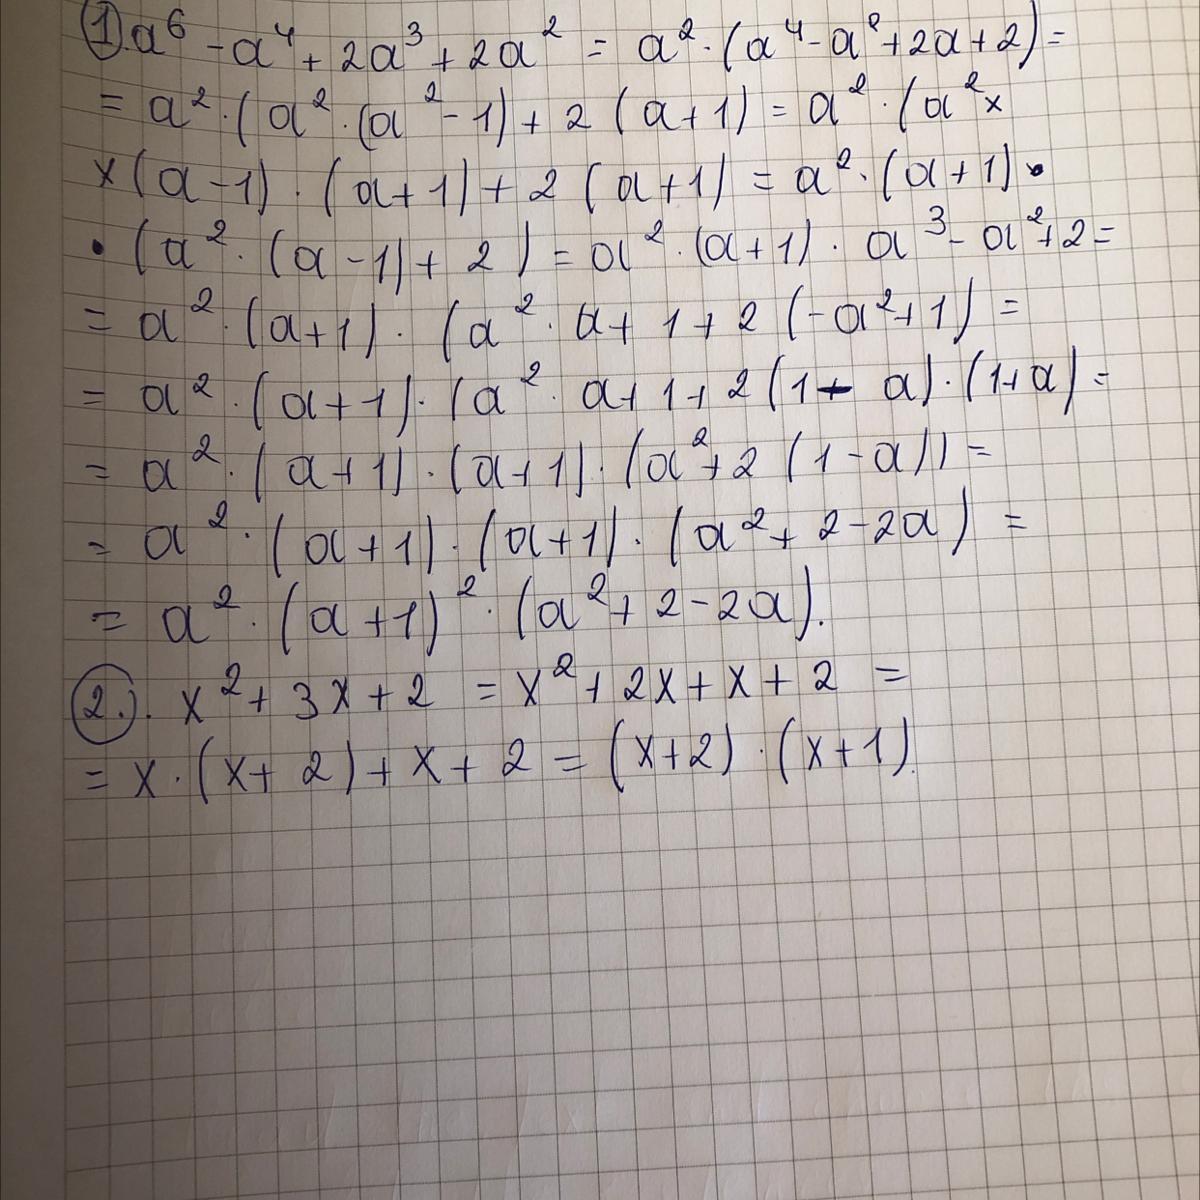 1) a⁶ - a⁴ + 2a³ + 2a² = a² · (a⁴ - a² + 2a + 2) =
= a² · (a² · (a² - 1) + 2 (a + 1) = a² · (a² ×
× (a - 1) · (a + 1) + 2 (a + 1) = a² · (a + 1) ·
· (a² · (a - 1) + 2) = a² · (a + 1) · a³ - a² + 2 =
= a² · (a + 1) · (a² · a + 1 + 2 (-a² + 1) =
= a² · (a + 1) · (a² · a + 1 + 2 (1 - a) · (1 + a) =
= a² · (a + 1) · (a + 1) · (a² + 2 (1 - a)) =
= a² · (a + 1) · (a + 1) · (a² + 2 - 2a) =
= a² · (a + 1)² · (a² + 2 - 2a).
2). x² + 3x + 2 = x² + 2x + x + 2 =
= x · (x + 2) + x + 2 = (x + 2) · (x + 1).